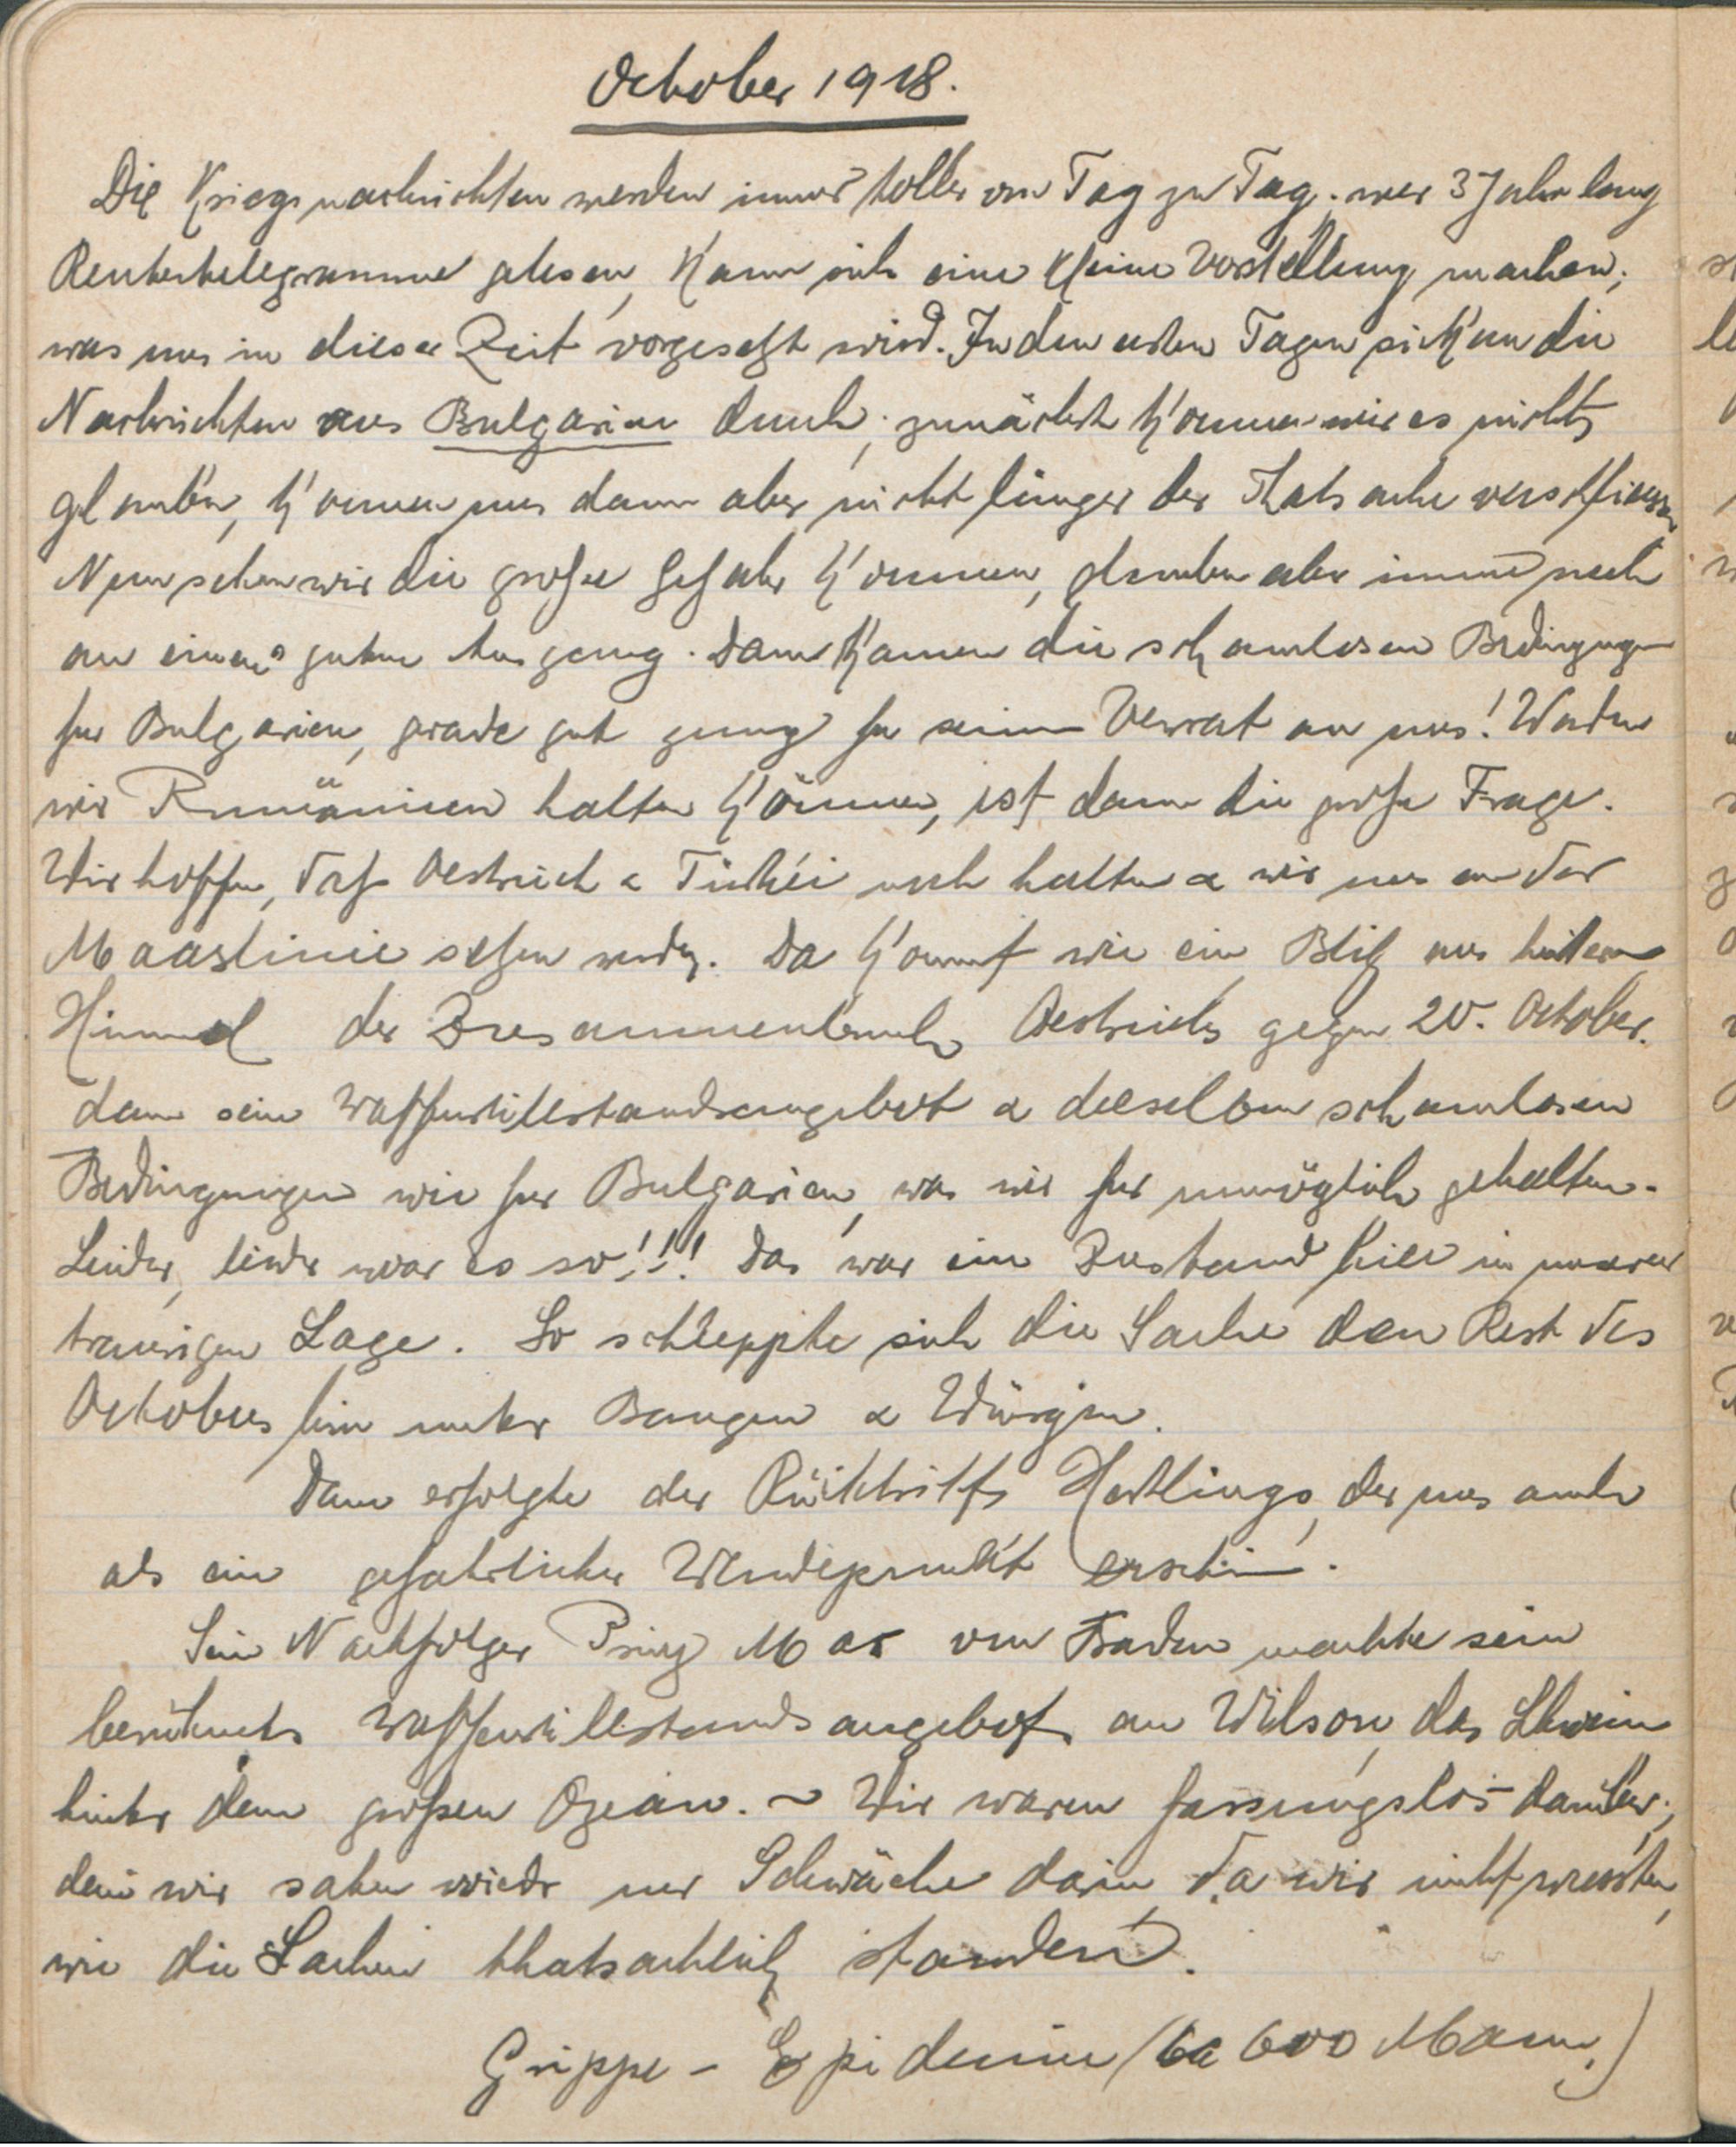 October 1918.
Die Kriegsnachrichten werden immer toller von Tag zu Tag; wer 3 Jahre lang
Reutertelegramme gelesen, kann sich eine kleine Vorstellung machen,
was uns in dieser Zeit vorgesetzt wird. In den ersten Tagen sickern die
Nachrichten aus Bulgarien durch; zunächst können wir es nicht
glauben, können uns dann aber nicht länger der Thatsache verschliessen
Nun sehen wir die große Gefahr kommen, glauben aber immer noch
an einen guten Ausgang. Dann kamen die schamlosen Bedingungen
fur Bulgarien, grade gut genug fur seinen Verrat an uns! Werden
wir Rumänien halten können, ist dann die große Frage.
Wir hoffen, daß Oestreich & Türkei noch halten & wir uns an der
Maaslinie setzen werden. Da kommt wie ein Blitz aus heiterem
Himmel der Zusammenbruch Oestreichs gegen 20. October.
dann sein Waffenstillstandsangebot & dieselben schamlosen
Bedingungen wie fur Bulgarien, was wir fur unmöglich gehalten.
Leider, leider war es so!!! Das war ein Zustand hier in unserer
traurigen Lage. So schleppte sich die Sache den Rest des
Octobers hin unter Bangen & Würgen.
Dann erfolgte der Rücktritt Hertlings, der uns auch
als ein gefahrlicher Wendepunkt erschien.
Sein Nachfolger Prinz Max von Baden machte sein
berühmtes Waffenstillstandsangebot an Wilson, das Schwein
hinter dem großen Ozean. ~ Wir waren fassungslos darüber;
denn wir sahen wieder nur Schwäche darin, da wir nicht wussten,
wie die Sachen thatsachlich standen.
Grippe - Epidemie (ca 600 Mann.)